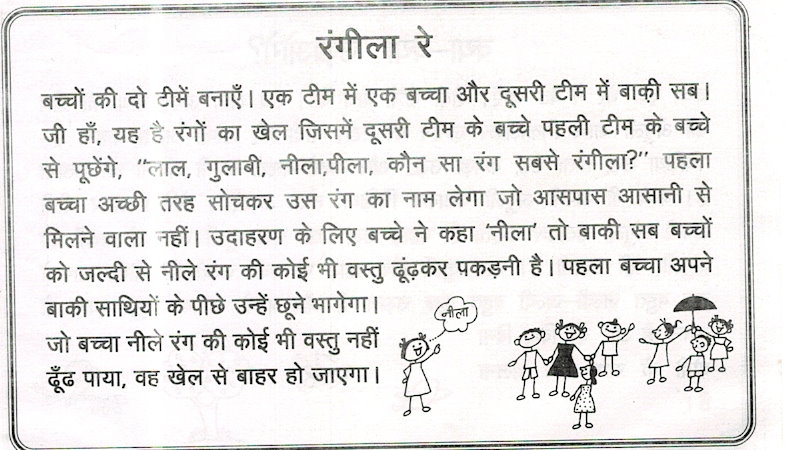 रंगीला रे
बच्चों की दो टीमें बनाएँ। एक टीम में एक बच्चा और दूसरी टीम में बाक़ी सब।
जी हाँ, यह है रंगों का खेल जिसमें दूसरी टीम के बच्चे पहली टीम के बच्चे
से पूछेंगे, "लाल, गुलाबी, नीला,पीला, कौन सा रंग सबसे रंगीला?" पहला
बच्चा अच्छी तरह सोचकर उस रंग का नाम लेगा जो आसपास आसानी से
मिलने वाला नहीं। उदाहरण के लिए बच्चे ने कहा 'नीला' तो बाकी सब बच्चों
को जल्दी से नीले रंग की कोई भी वस्तु ढूंढ़कर पकड़नी है। पहला बच्चा अपने
बाकी साथियों के पीछे उन्हें छूने भागेगा।
जो बच्चा नीले रंग की कोई भी वस्तु नहीं
ढूँढ पाया, वह खेल से बाहर हो जाएगा।
नीला